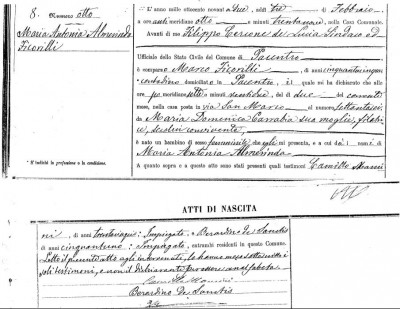 8.
Numero otto
Maria Antonia Almerinda
Ficorilli
L'anno mille ottocento novantadue, addì tre di Febbraio,
a ore antimeridiane otto e minuti trentanove, nella Casa Comunale.
Avanti di me Filippo Cercone de Lucia Sindaco ed
Ufficiale dello Stato Civile del Comune di Pacentro
è comparso Marco Ficorilli, di anni cinquantacinque
contadino domiciliato in Pacentro, il quale mi ha dichiarato che alle
ore pomeridiane sette e minuti quindici, del dì due del corrente
mese, nella casa posta in via San Marco al numero settantasei,
da Maria Domenica Carrabia sua moglie, filatrice,
seco lui convivente,
è nato un bambino di sesso femminile che egli mi presenta, e a cui dà i nomi di
Maria Antonia Almerinda
A quanto sopra e a questo atto sono stati presenti quali testimoni Camillo
* S'indichi la professione o la condizione.
ATTI DI NASCITA
ni, di anni trentacinque, Impiegato, e Berardino De Sanctis
di anni cinquantuno, Impiegato, entrambi residenti in questo Comune.
Letto il presente atto agli intervenuti, lo hanno meco sottoscritto i
soli testimoni, e non il dichiarante per essere analfabeta
Camillo
Berardino De Sanctis